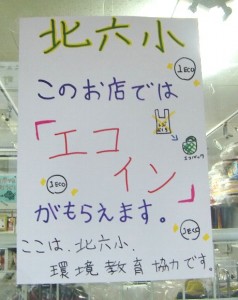 北六小
このお店では
1ECO
「エコ
エコバッグ
1ECO
イン」
がもらえます。
1ECO
ここは、北六小、
環境教育協力です。